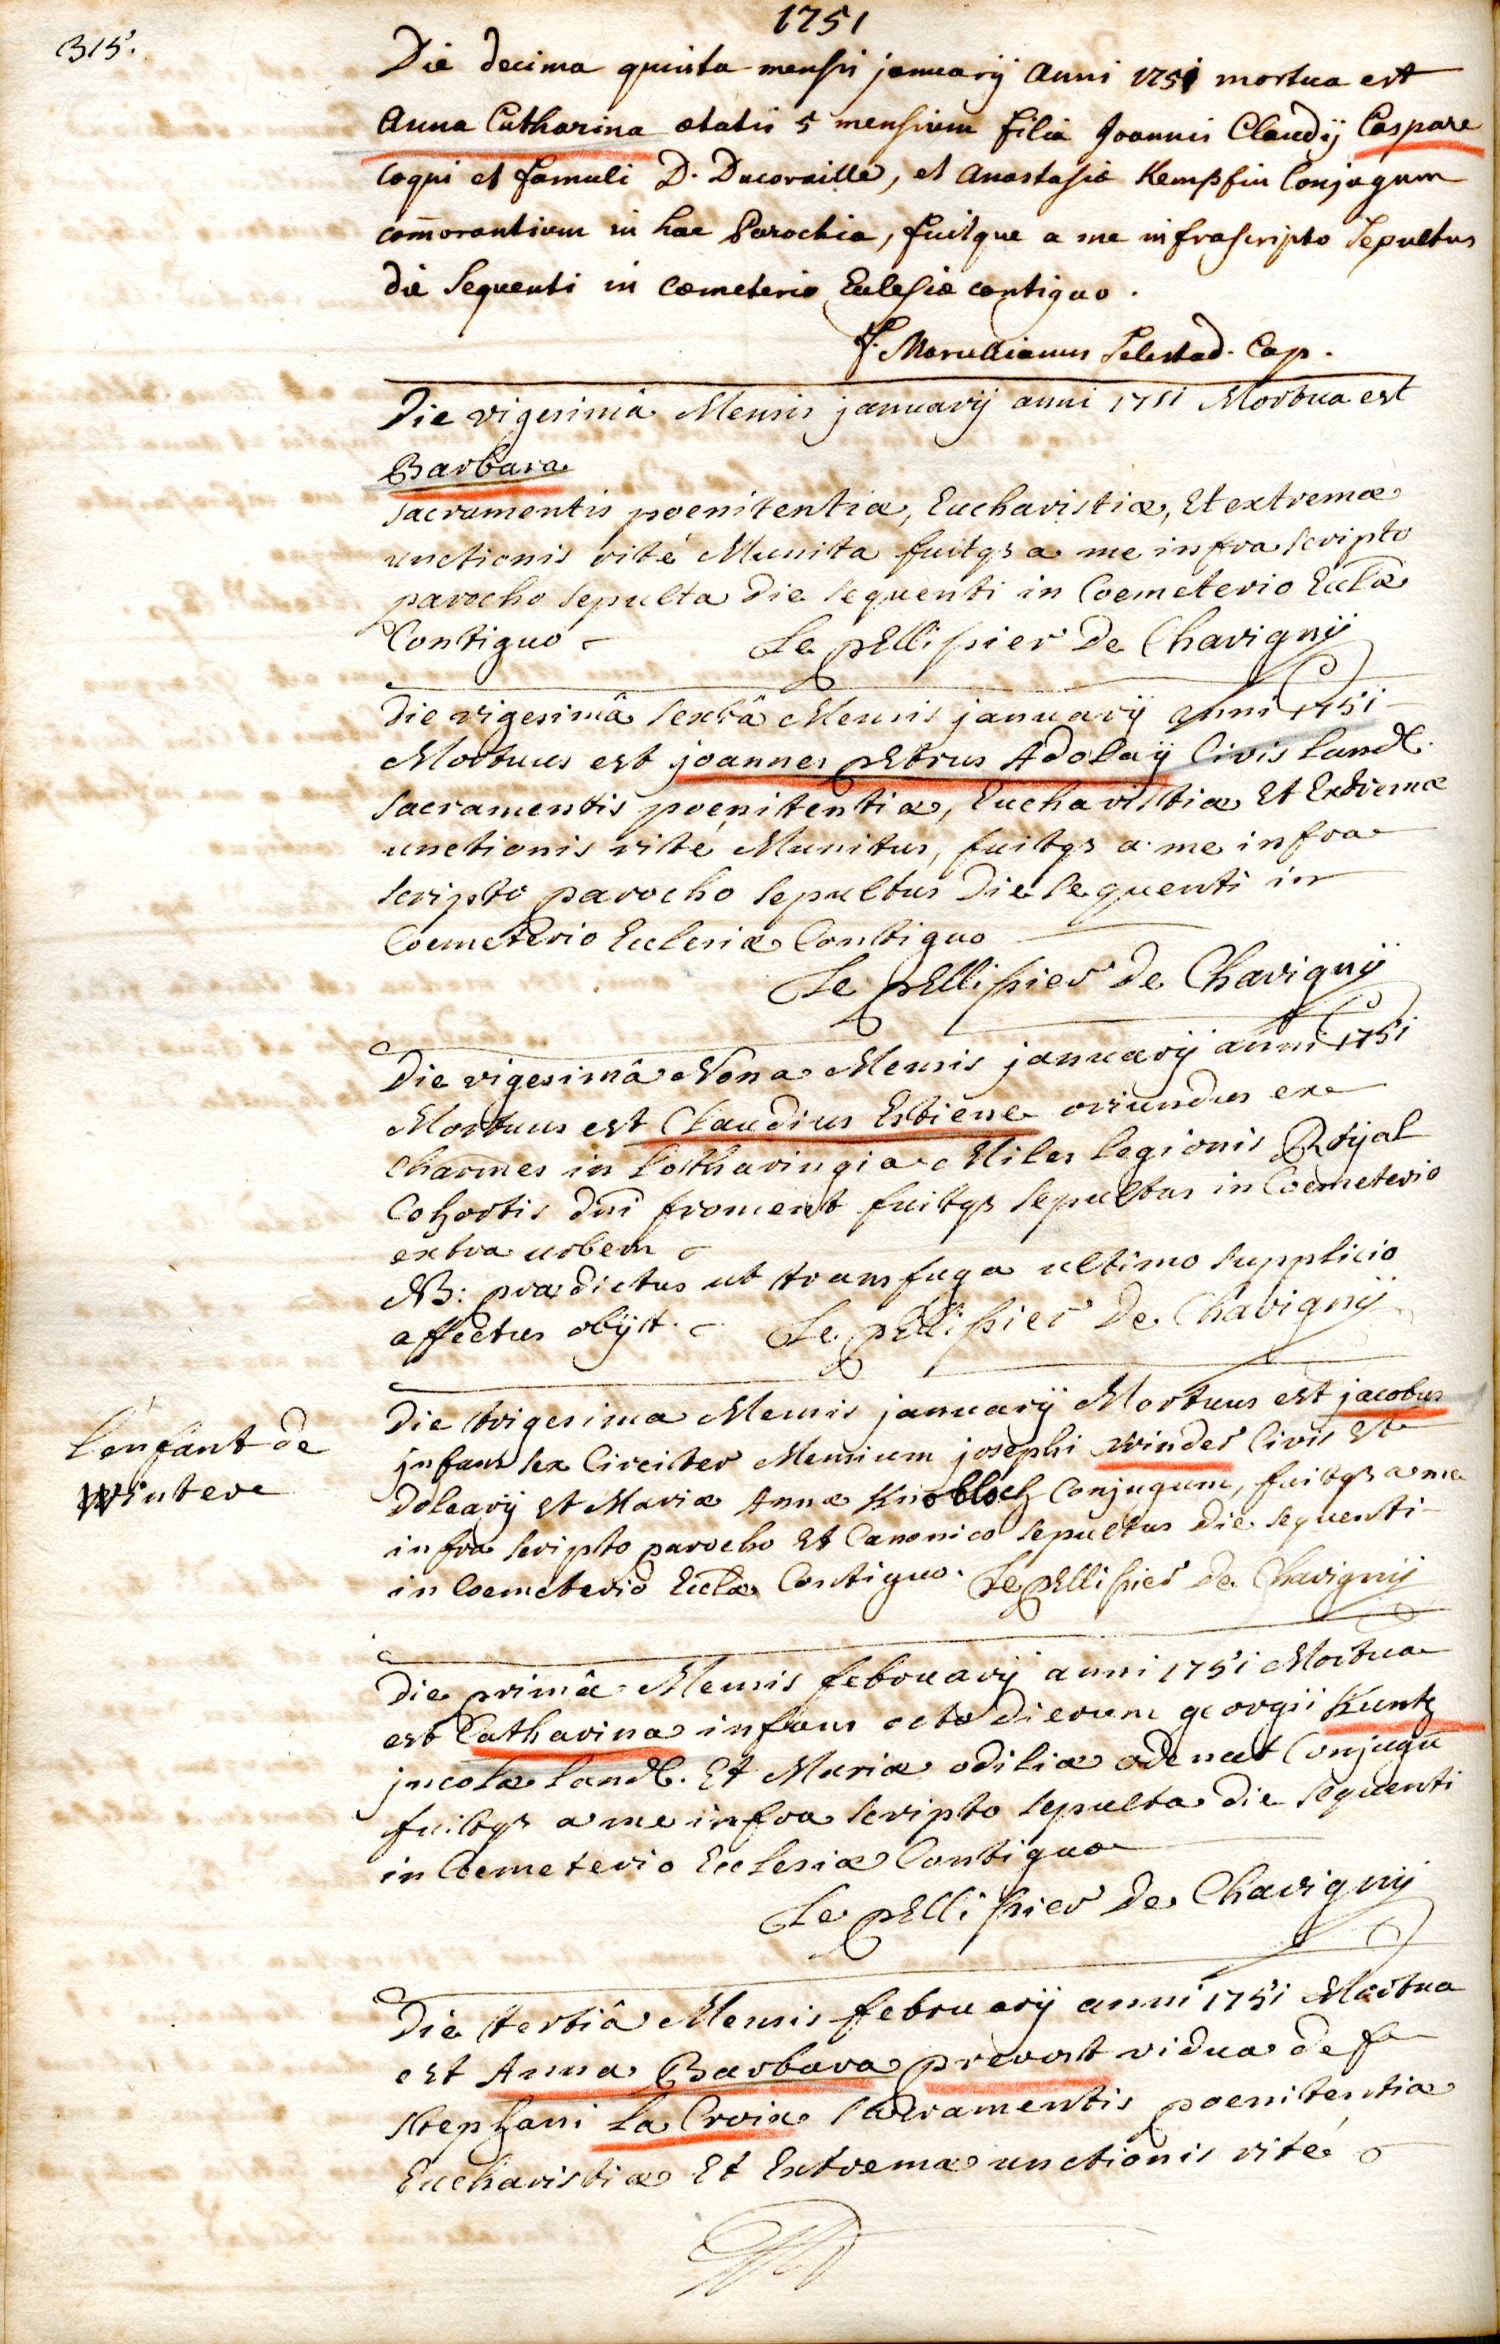 1751
315.
Die decima quinta mensis januarij anni 1751 mortua est
Anna Catharina ætatis 5 mensium filia Joannis Claudij Caspare
coqui et famuli D. Ducoraille, et Anastasiæ Kempffin Conjugum
com̄orantium in hac Parochia, fuitque a me infrascripto Sepultus
die Sequenti in Cœmeterio Eclesiæ contiguo.
f. Marullianus Selestad. Cap.
Die vigesimâ Mensis januarij anni 1751 Mortua est
Barbara
sacramentis pœnitentiæ, Eucharistiæ, Et extremæ
unctionis rité Munita fuitqȝ a me infra scripto
parocho sepulta Die sequenti in Coemeterio Eccl̄æ
Contiguo
Le pEllissier De Chavignÿ
Die vigesimâ sextâ Mensis januarÿ anni 1751
Mortuus est joannes pEtrus Adolaÿ Civis Land.
sacramentis pœnitentiæ, Eucharistiæ Et Extremæ
unctionis rité Munitus, fuitqȝ a me infra
scripto parocho sepultus Die sequenti in
Coemeterio Ecclesiæ Contiguo
Le pEllissier De Chavignÿ
Die vigesimâ Nona Mensis januarij anni 1751
Mortuus est Claudius Estiene oriundus ex
Charmes in Lotharingia Miles legionis Roÿal
Cohortis dn̄i froment fuitqȝ sepultus in Coemeterio
extra urbem
NB: prædictus ut transfuga ultimo supplicio
affectus obijt.
Le pEllissier De Chavignÿ
L'enfant de
Wintere
Die trigesima Mensis januarij Mortuus est jacobus
jnfans sex Circiter Mensium josephi winder Civis Et
Doliarij Et Mariæ Annæ Knobloch Conjugum, fuitqȝ a me
infra scripto parocho Et Canonico sepultus Die sequenti
in Coemeterio Eccl̄æ Contiguo.
Le pEllissier De Chavignÿ
Die primâ Mensis februarij anni 1751 Mortua
est Catharina infans octo Dierum georgii Kuntz
jncolæ Land. Et Mariæ odiliæ odenat Conjugū
fuitqȝ a me infra scripto sepulta Die sequenti
in Coemeterio Ecclesiæ Contiguo
Le pEllissier De Chavignÿ
Die tertiâ Mensis februarij anni 1751 Mortua
est Anna Barbara prevost vidua def
stephani La Croix sacramentis pœnitentiæ
Eucharistiæ Et Extremæ unctionis rité